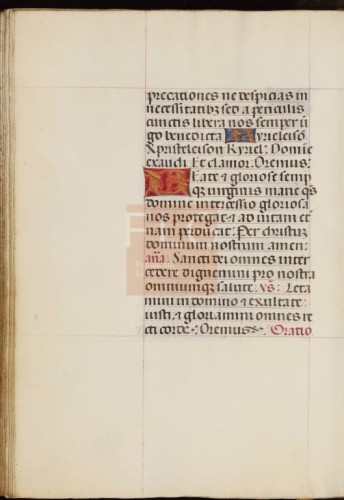 precationes ne despicias in
necessitatibꝫ sed a periculis
cunctis libera nos semper ũ
go benedicta Kyrieleisõ
Xpristeleison Kyriel. Domie
exaudi Et clamor. Oremus:
Beate ⁊ gloriose semp
qꝫ virginis marie q̃s
domine intercessio gloriosa
nos protegat ⁊ ad vitam et̃
nam perducat. Per christũ
dominum nostrum amen.
añã. Sancti dei omnes inter
cedere dignemini pro nostra
omniumqꝫ salute. vs: Leta
mini in domino ⁊ exultate
iusti. ⁊ gloriamini omnes re
cti corde: Oremus. Oratio